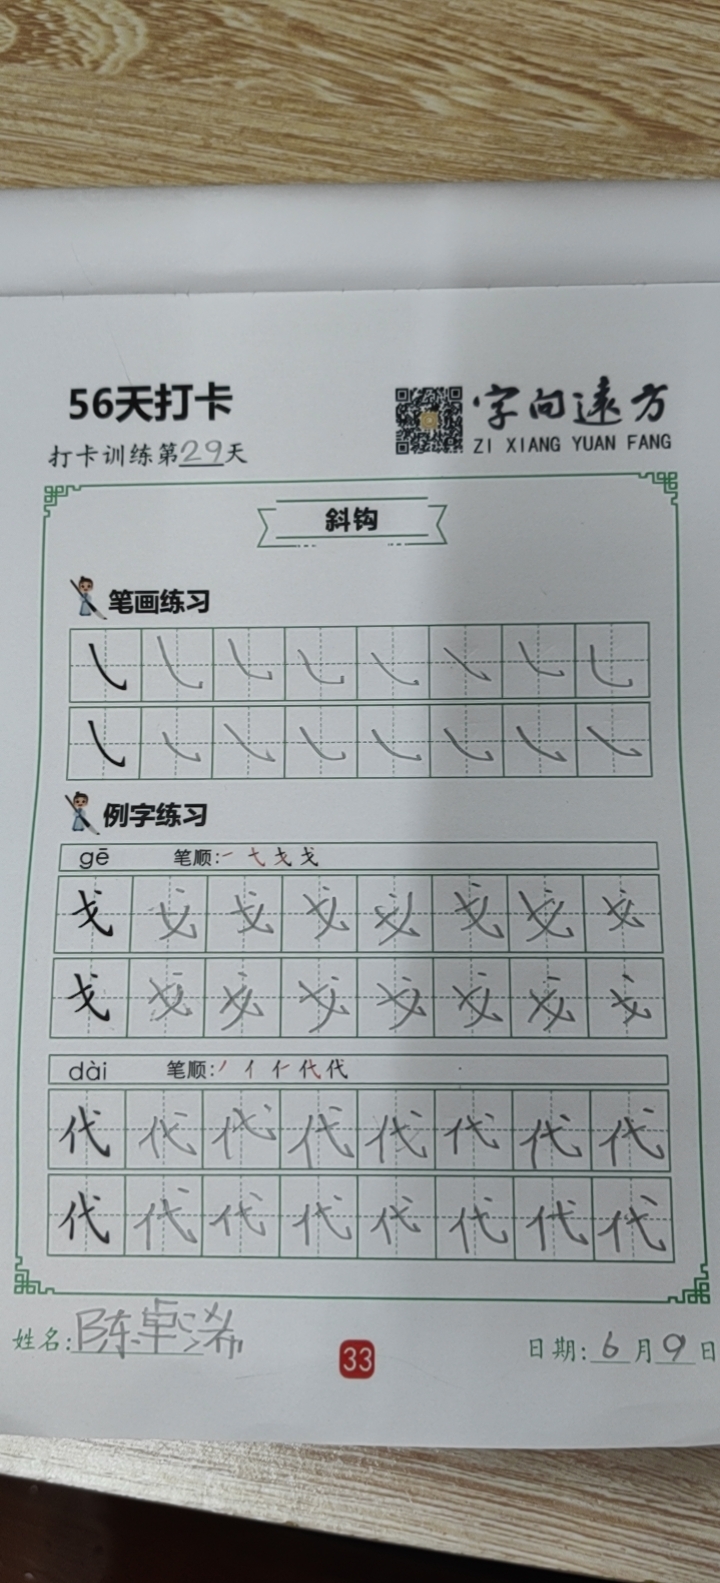 56天打卡
字向遠方
ZI XIANG YUAN FANG
打卡训练第29天
斜钩
笔画练习
㇂ ㇂ ㇂ ㇂ ㇂ ㇂ ㇂ ㇂
㇂ ㇂ ㇂ ㇂ ㇂ ㇂ ㇂ ㇂
例字练习
gē 笔顺:一 七 戈 戈
戈 戈 戈 戈 戈 戈 戈 戈
戈 戈 戈 戈 戈 戈 戈 戈
dài 笔顺:丿 亻 仁 代 代
代 代 代 代 代 代 代 代
代 代 代 代 代 代 代 代
姓名:陈卓浠
33
日期:6月9日